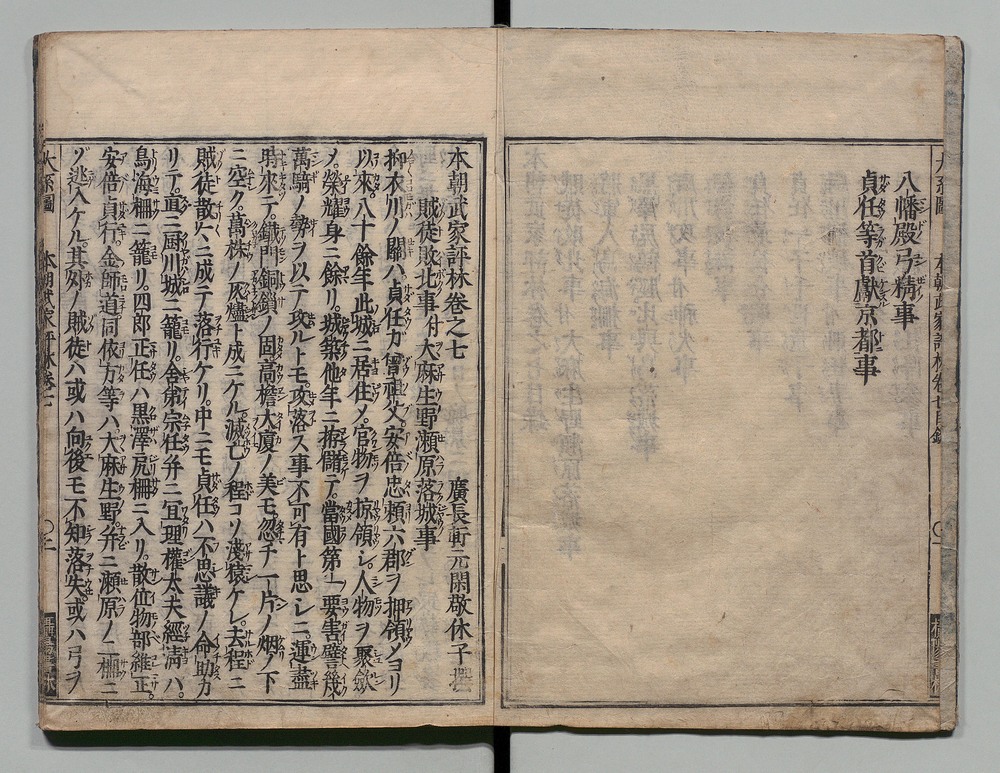 八幡殿弓精事
貞任等首献京都事
本朝武家評林巻之七
廣長軒元閑敬休子撰
賊徒敗北事付大麻生野瀬原落城事
抑衣川ノ關ハ貞任ガ曽祖父安倍忠頼六郡ヲ押領メヨリ
以來八十餘年此城ニ居住メ。官物ヲ掠領シ。人物ヲ聚斂
メ。榮耀身ニ餘リ。城築他年ニ拵儲テ。當國第一要害譬幾
萬騎ノ勢ヲ以テ攻ルトモ攻落ス事不可有ト思シニ。運盡
時來テ。鐵門銅鎖ノ固高檐大廈ノ美モ忽チ一片ノ烟ノ下
ニ空ク。萬株ノ灰燼ト成ニケル滅亡ノ程コソ淺猿ケレ。去程ニ
賊徒散々ニ成テ落行ケリ。中ニモ貞任ハ不思議ノ命助カ
リテ。直ニ厨川城ニ籠リ。舎弟宗任并ニ亘理權太夫經清ハ。
鳥海柵ニ籠リ。四郎正任ハ黒澤尻柵ニ入リ。散位物部維正
安倍貞行。金師道同依方等ハ大麻生野。并ニ瀬原ノ二柵ニ
ゾ逃入ケル。其外ノ賊徒ハ或ハ向後モ不知落失或ハ弓ヲ
大系圖 本朝武家評林巻七 〇二